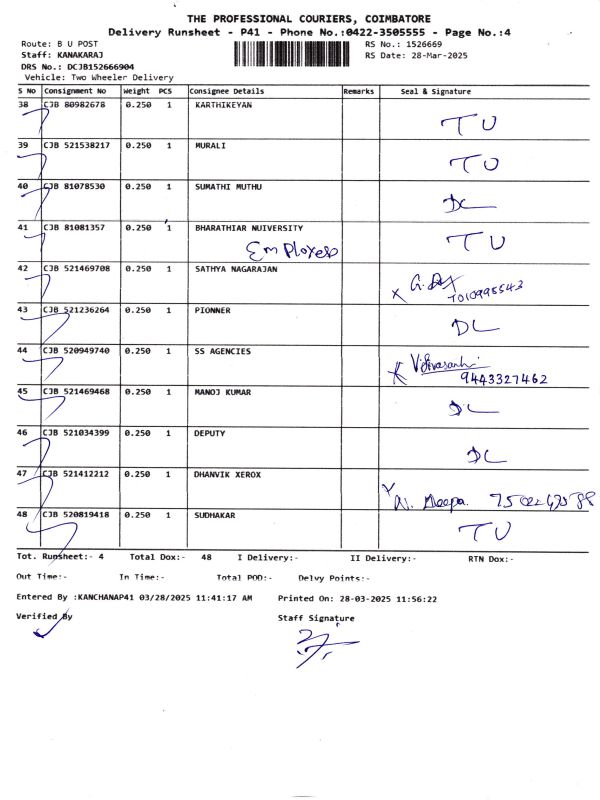 THE PROFESSIONAL COURIERS, COIMBATORE
Delivery Runsheet - P41 - Phone No.:0422-3505555 - Page No.:4
Route: B U POST RS No.: 1526669
Staff: KANAKARAJ RS Date: 28-Mar-2025
DRS No.: DCJB152666904
Vehicle: Two Wheeler Delivery
S No Consignment No Weight PCS Consignee Details Remarks Seal & Signature
38 CJB 80982678 0.250 1 KARTHIKEYAN TU
39 CJB 521538217 0.250 1 MURALI TU
40 CJB 81078530 0.250 1 SUMATHI MUTHU DL
41 CJB 81081357 0.250 1 BHARATHIAR NUIVERSITY TU
Employes
42 CJB 521469708 0.250 1 SATHYA NAGARAJAN
7010995543
43 CJB 521236264 0.250 1 PIONNER DL
44 CJB 520949740 0.250 1 SS AGENCIES
9443327462
45 CJB 521469468 0.250 1 MANOJ KUMAR DL
46 CJB 521034399 0.250 1 DEPUTY DL
47 CJB 521412212 0.250 1 DHANVIK XEROX
48 CJB 520819418 0.250 1 SUDHAKAR TU
Tot. Runsheet:- 4 Total Dox:- 48 I Delivery:- II Delivery:- RTN Dox:-
Out Time:- In Time:- Total POD:- Delvy Points:-
Entered By :KANCHANAP41 03/28/2025 11:41:17 AM Printed On: 28-03-2025 11:56:22
Verified By Staff Signature